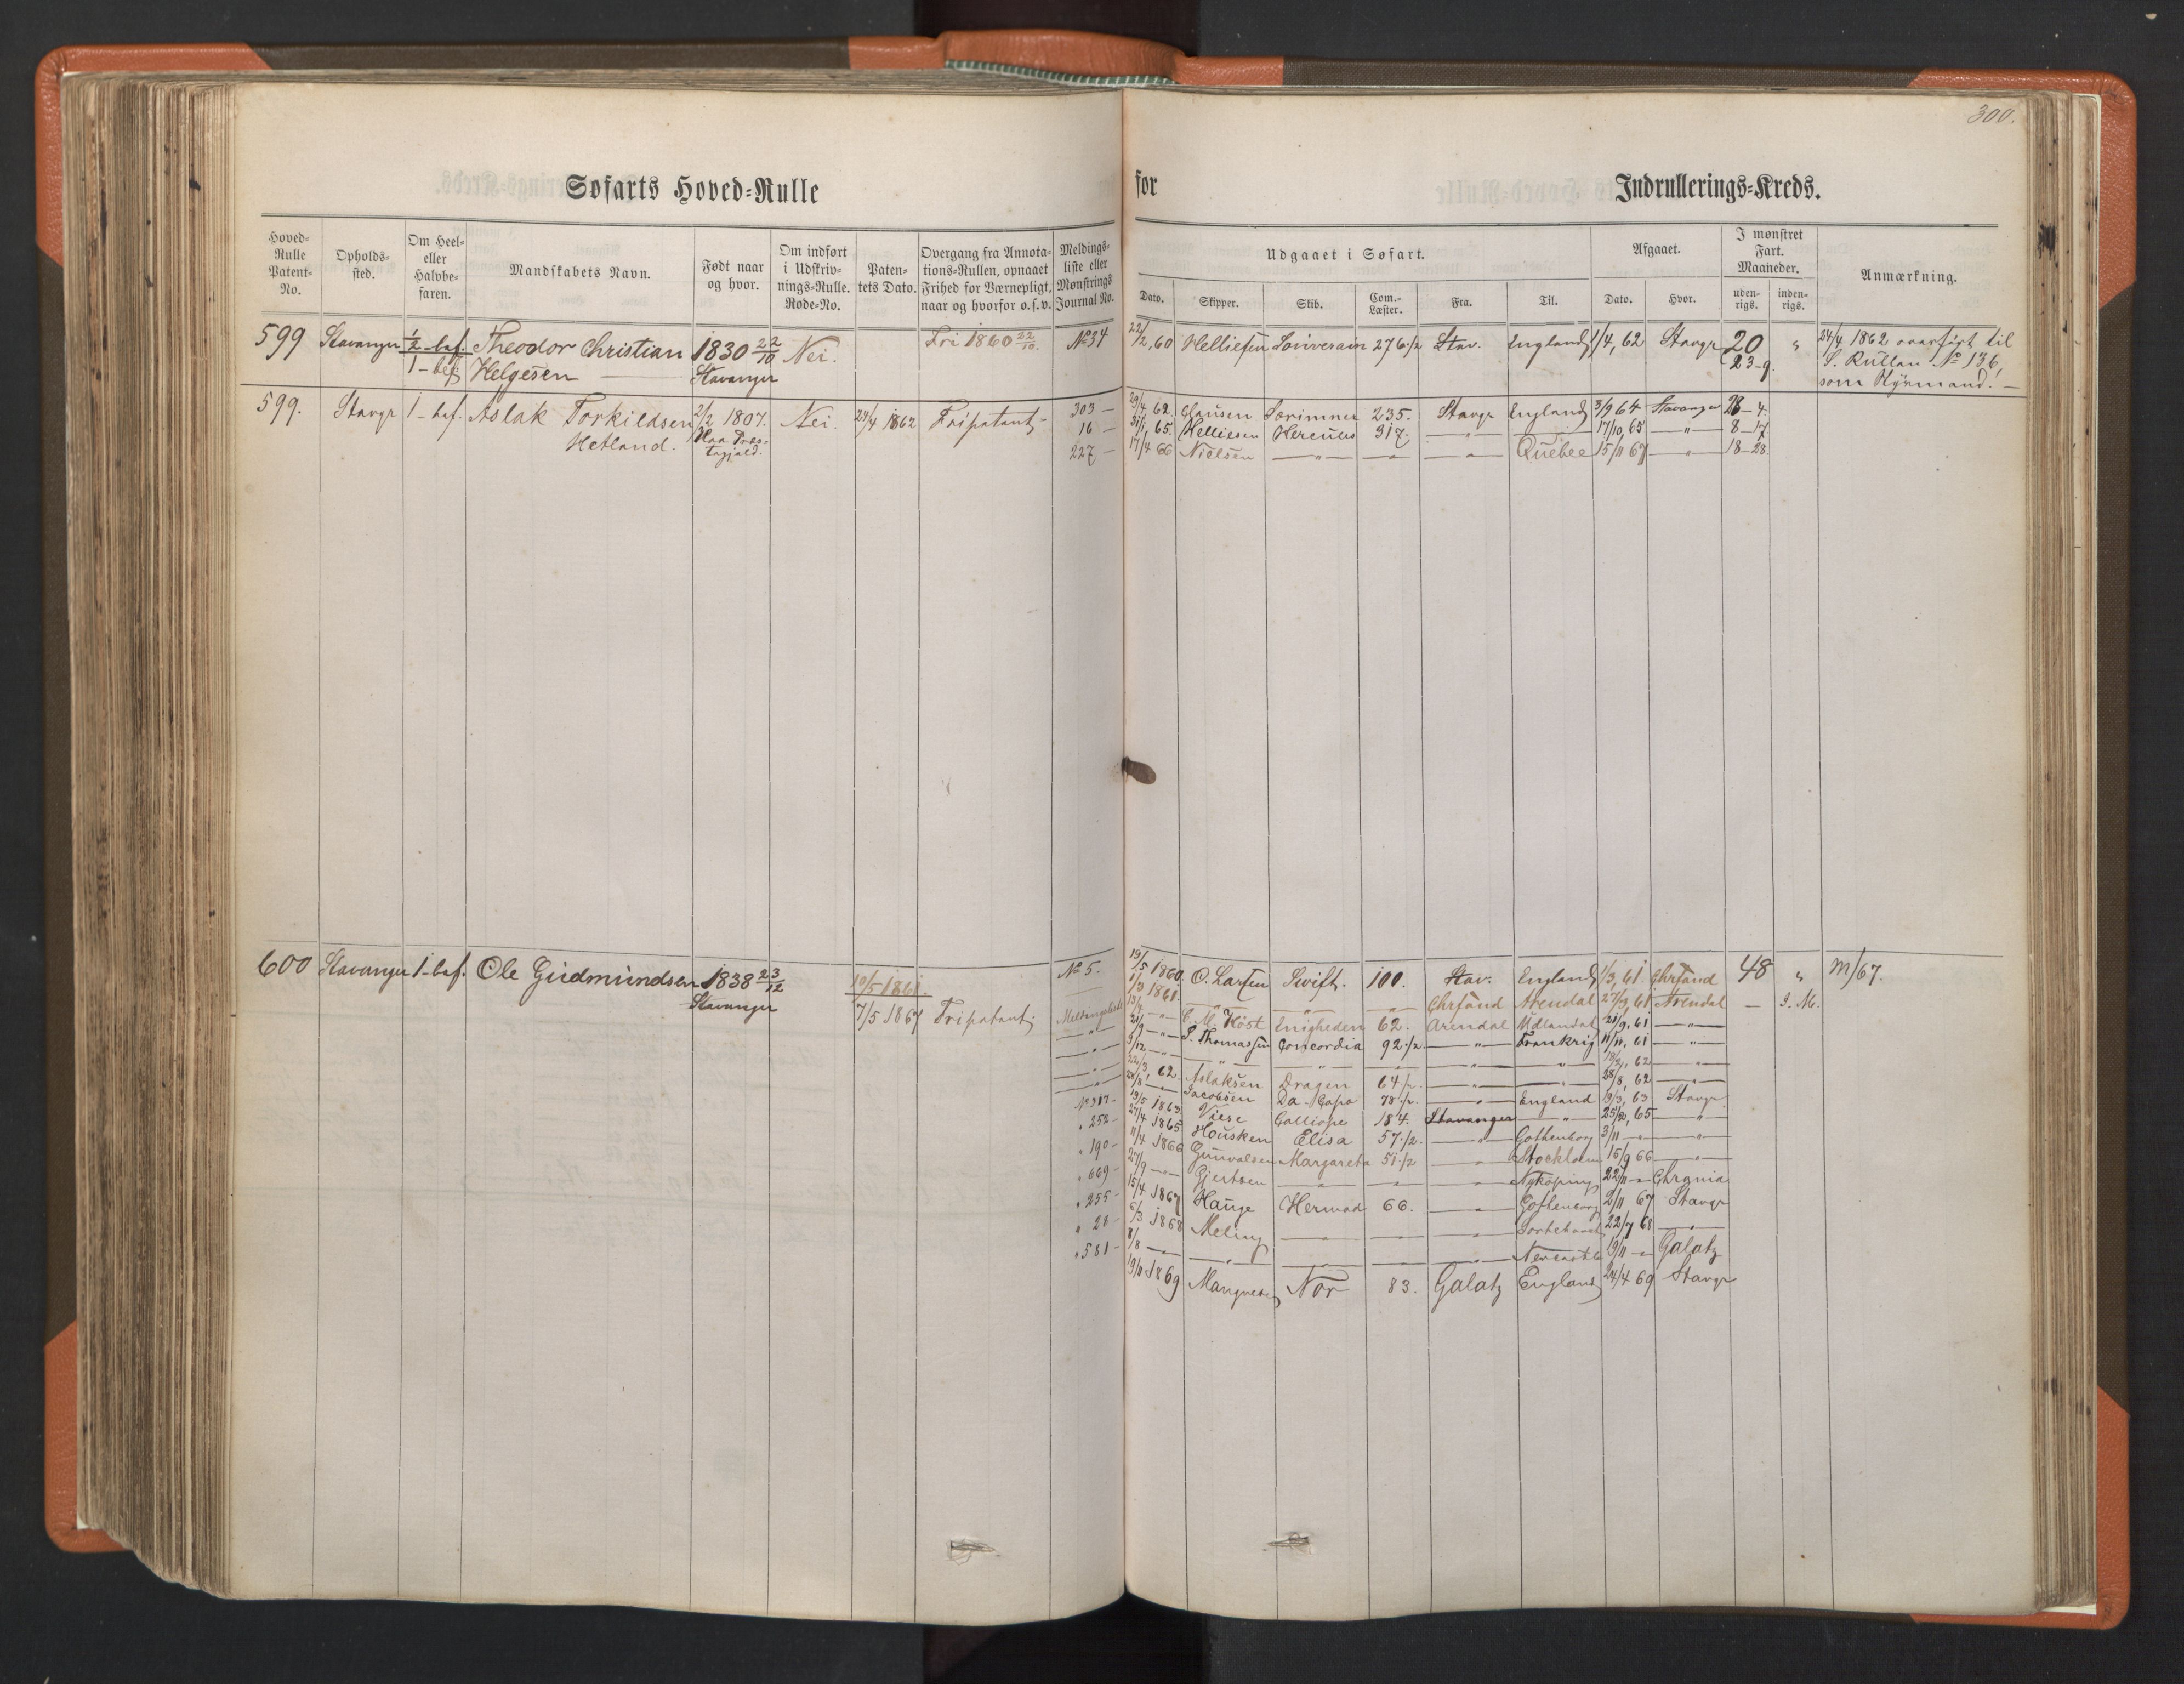 300.
Søfarts Hoved-Rulle for Indrullerings-Kreds.
Hoved-Rulle Patent-No. Opholds-sted. Om Heel- eller Halvbe-faren. Mandskabets Navn. Født naar og hvor. Om indført i Udskriv-nings-Rulle. Rode-No. Paten-tets Dato. Overgang fra Annota-tions-Rullen, opnaaet Frihed for Værnepligt, naar og hvorfor o.s.v. Meldings-liste eller Mønstrings Journal No.
Udgaaet i Søfart. Afgaaet. I mønstret Fart. Maaneder. Anmærkning.
Dato. Skipper. Skib. Com.-Læster. Fra. Til. Dato. Hvor. uden-rigs. inden-rigs.
599 Stavanger 1/2 - bef. Theodor Christian 1830 22/10 Nei. Fri 1860 22/10. No 34 22/2, 60 Helliesen 276 1/2 Stav. England 1/4, 62 Stavgr 20 " 24/4 1862 overført til
1 - bef. Helgesen Stavanger 23-9. S. Rullen No 136,
som Styrmand! —
599. Stavgr 1 - bef. Aslak Torkildsen 2/2 1807. Nei. 24/4 1862 Fripatent - 303 — 29/4 62. Clausen Sørimner 235. Stavgr England 3/9 64 Stavanger 28-4.
Hetland. Haa Præs- 16 — 31/1, 65. Helliesen Hercules 317. — " — 17/10 65 — " — 8-17
tegjeld. 227 — 17/4 66 Nielsen — " — — " — — " — Quebec 15/11 67 — " — 18-28.
600 Stavanger 1 - bef. Ole Gudmundsen 1838 23/12 10/5 1861. No 5. 19/5 1860. O. Larsen Swift. 100. Stav. England 1/3, 61. Chrsand 48 " M/67.
Stavanger 7/5 1867 Fripatent; 1/3 1861. — " — — " — — " — Chrsand Arendal 27/3, 61 Arendal — I. M.
C. M. Høst Enigheden 62. Arendal Udlandet 21/9, 61 — " —
21/9 — " — P. Thomassen Concordia 92 1/2 — " — Frankrig 11/11, 61 — " —
— " — 3/12 — " — — " — — " — — " — — " — — " — 62 — " —
— " — 22/3, 62. Aslaksen Dragen 64 1/2 — " — — " — 28/8, 62 — " —
No 317 - 28/8 — " — Jacobsen Da Capo 78 1/2. — " — England 19/3, 63 Stavgr
" 252 - 19/5 1863 Viese Calliope 184. Stavanger — " — 65 — " —
" 190 - 27/4 1865 Housken Elisa 57 1/2. — " — Gothenborg 3/11 — " — — " —
" 669 - 11/4 1866 Gunvalsen Margareta 51 1/2 — " — Stockholm 15/9 66 — " —
" 255 - 27/9 — " — Gjertsen — " — — " — — " — Nykøping 22/11 — " — Chrania
" 28 - 15/4 1867 Hauge Hermod 66. — " — Gothenborg 2/11 67 Stavgr
" 581 - 6/3 1868 Meling — " — — " — — " — 22/7 68 — " —
8/8 — " — — " — — " — — " — — " — Newcastle 19/11 — " — Galatz
19/11 1869 Nor 83. Galatz England 24/4 69 Stavgr